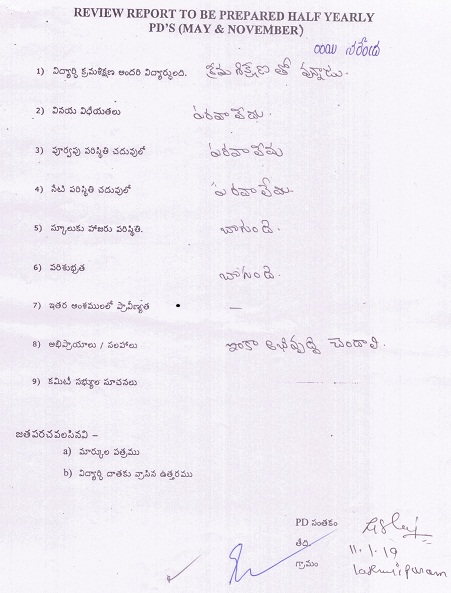 REVIEW REPORT TO BE PREPARED HALF YEARLY
PD'S (MAY & NOVEMBER)
1) విద్యార్థి క్రమశిక్షణ అందరి విద్యార్థులది. క్రమశిక్షణ తో వున్నాడు.
2) వినయ విధేయతలు పరవాలేదు.
3) పూర్వపు పరిస్థితి చదువులో పరవాలేదు
4) నేటి పరిస్థితి చదువులో పరవాలేదు.
5) స్కూలుకు హాజరు పరిస్థితి. బాగుంది.
6) పరిశుభ్రత బాగుంది.
7) ఇతర అంశములలో ప్రావీణ్యత —
8) అభిప్రాయాలు / సలహాలు ఇంకా అభివృద్ధి చెందాలి.
9) కమిటీ సభ్యుల సూచనలు
జతపరచవలసినవి –
a) మార్కుల పత్రము
b) విద్యార్థి దాతకు వ్రాసిన ఉత్తరము
PD సంతకం
తేది 11.1.19
గ్రామం